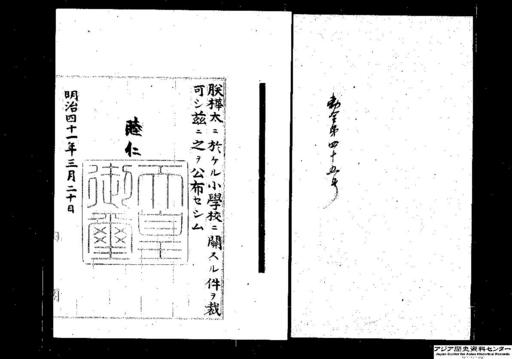 勅令第四十五号
朕樺太ニ於ケル小學校ニ關スル件ヲ裁
可シ茲ニ之ヲ公布セシム
睦仁
天皇
御璽
明治四十一年三月二十日
アジア歴史資料センター
Japan Center for Asian Historical Records